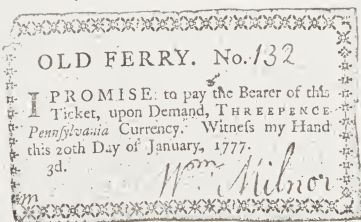 OLD FERRY. No. 132
I PROMISE to pay the Bearer of this
Ticket, upon Demand, THREEPENCE
Pennsylvania Currency. Witness my Hand
this 20th Day of January, 1777.
3d.
Wm Milnor
m